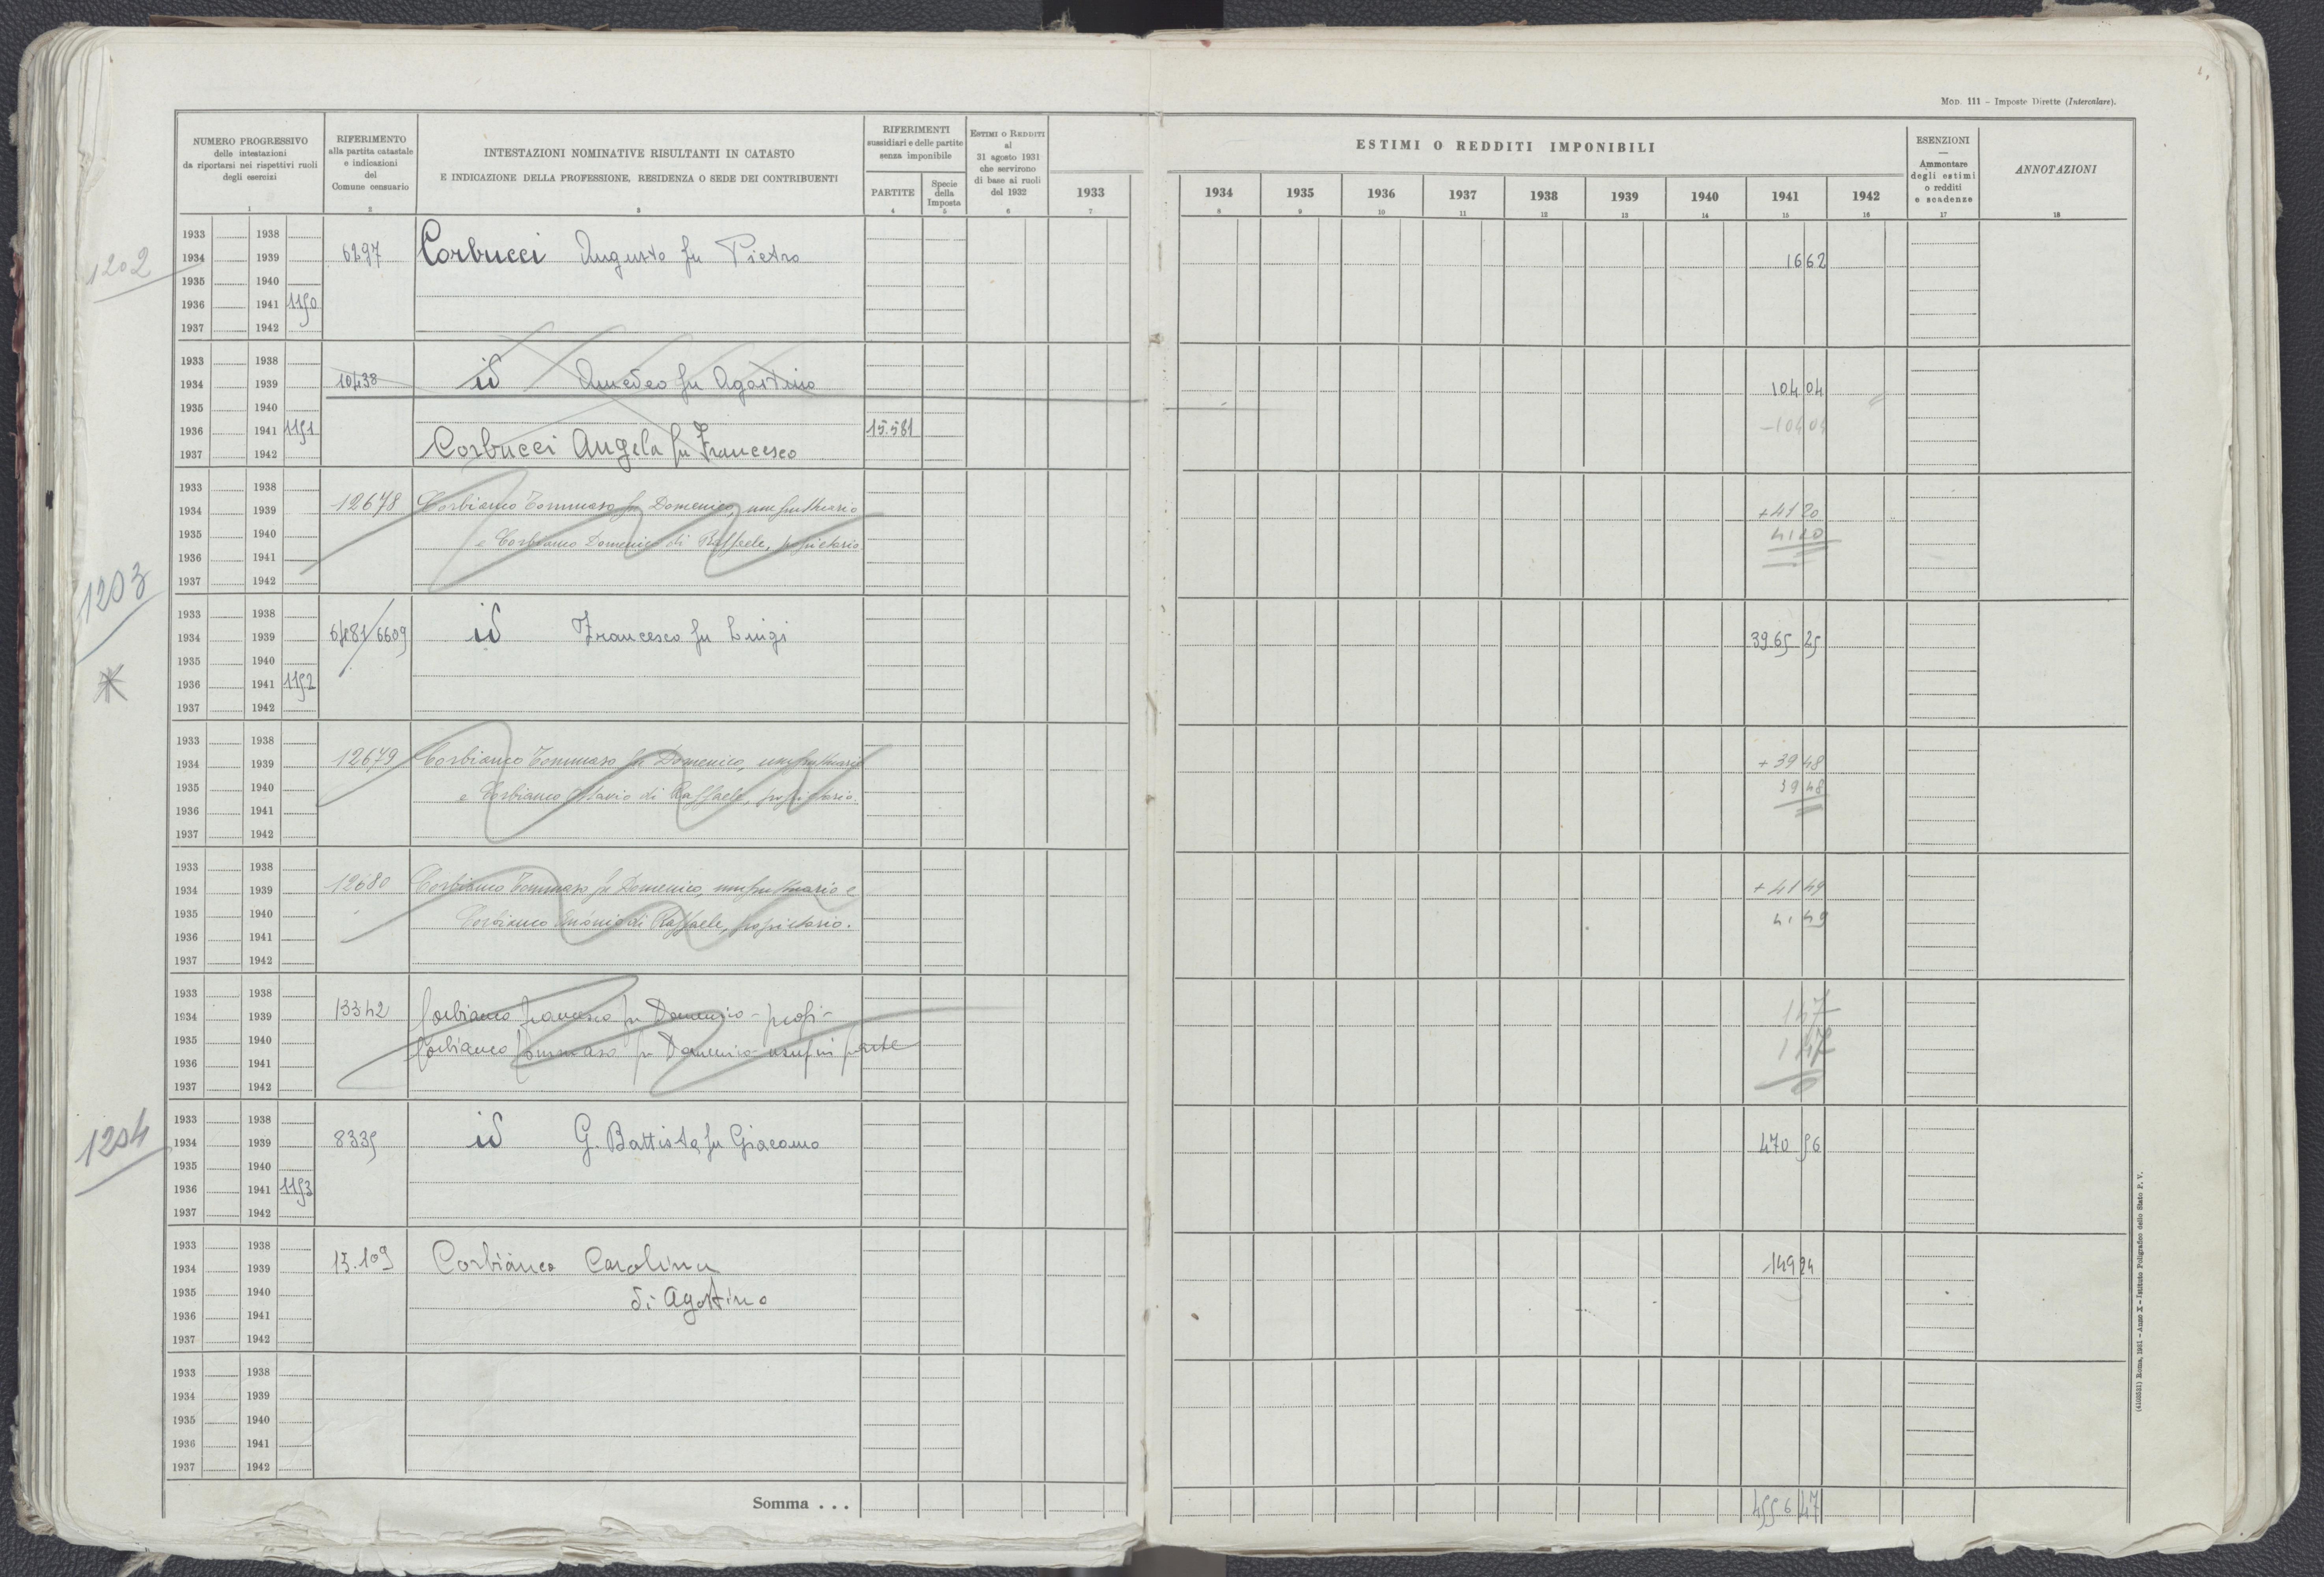 MOD. 111 – Imposte Dirette (Intercalare).
NUMERO PROGRESSIVO
delle intestazioni
da riportarsi nei rispettivi ruoli
degli esercizi
1
RIFERIMENTO
alla partita catastale
e indicazioni
del
Comune censuario
2
INTESTAZIONI NOMINATIVE RISULTANTI IN CATASTO
E INDICAZIONE DELLA PROFESSIONE, RESIDENZA O SEDE DEI CONTRIBUENTI
3
RIFERIMENTI
sussidiari e delle partite
senza imponibile
PARTITE
4
Specie
della
Imposta
5
ESTIMI O REDDITI
al
31 agosto 1931
che servirono
di base ai ruoli
del 1932
6
1933
7
ESTIMI O REDDITI IMPONIBILI
1934 1935 1936 1937 1938 1939 1940 1941 1942
8 9 10 11 12 13 14 15 16
ESENZIONI
—
Ammontare
degli estimi
o redditi
e scadenze
17
ANNOTAZIONI
18
1933 1938
1202 1934 1939 6297 Corbucci Augusto fu Pietro 16 62
1935 1940
1936 1941 1150
1937 1942
1933 1938
1934 1939 10438 id Amedeo fu Agostino 104 04
1935 1940
1936 1941 1151 15.581 -104 04
1937 1942 Corbucci Angela fu Francesco
1933 1938
1934 1939 12678 Corbianco Tommaso fu Domenico, usufruttuario +41 20
1935 1940 e Corbianco Domenico di Raffaele, proprietario 41 20
1936 1941
1937 1942
1203
1933 1938
1934 1939 6481/6609 id Francesco fu Luigi 3965 25
1935 1940
1936 1941 1152
1937 1942
1933 1938
1934 1939 12679 Corbianco Tommaso fu Domenico, usufruttuario +39 48
1935 1940 e Corbianco Ottavio di Raffaele, proprietario. 39 48
1936 1941
1937 1942
1933 1938
1934 1939 12680 Corbianco Tommaso fu Domenico, usufruttuario e +41 49
1935 1940 Corbianco di Raffaele, proprietario. 41 49
1936 1941
1937 1942
1933 1938
1934 1939 13342 Corbianco Francesco fu Domenico - propr- 1 47
1935 1940 Corbianco Tommaso fu Domenico usufr in parte 1 47
1936 1941 0
1937 1942
1933 1938
1204 1934 1939 8335 id G. Battista fu Giacomo 470 56
1935 1940
1936 1941 1153
1937 1942
1933 1938
1934 1939 15.109 Corbianco Carolina 149 24
1935 1940 di Agostino
1936 1941
1937 1942
1933 1938
1934 1939
1935 1940
1936 1941
1937 1942
Somma . . . 47
(4103531) Roma, 1931 – Anno X – Istituto Poligrafico dello Stato P. V.